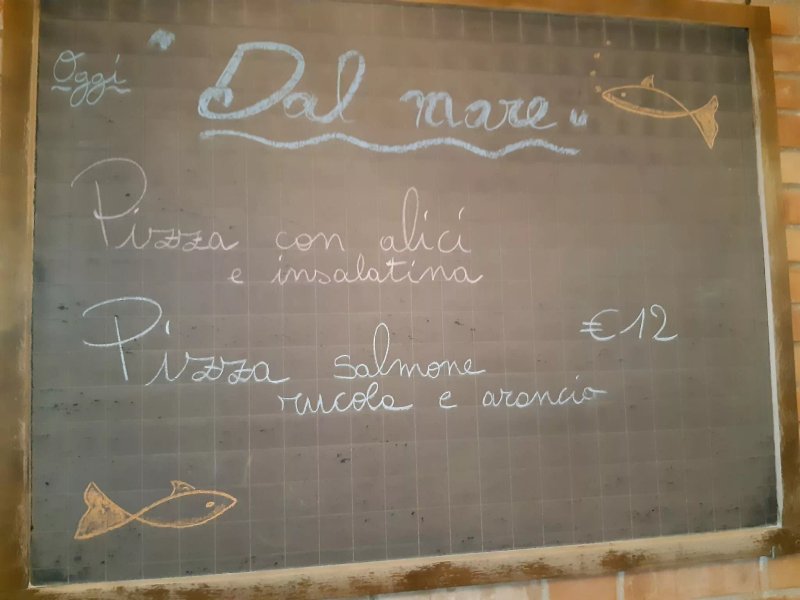 Oggi
"Dal mare"
Pizza con alici
e insalatina
€12
Pizza salmone
rucola e arancio